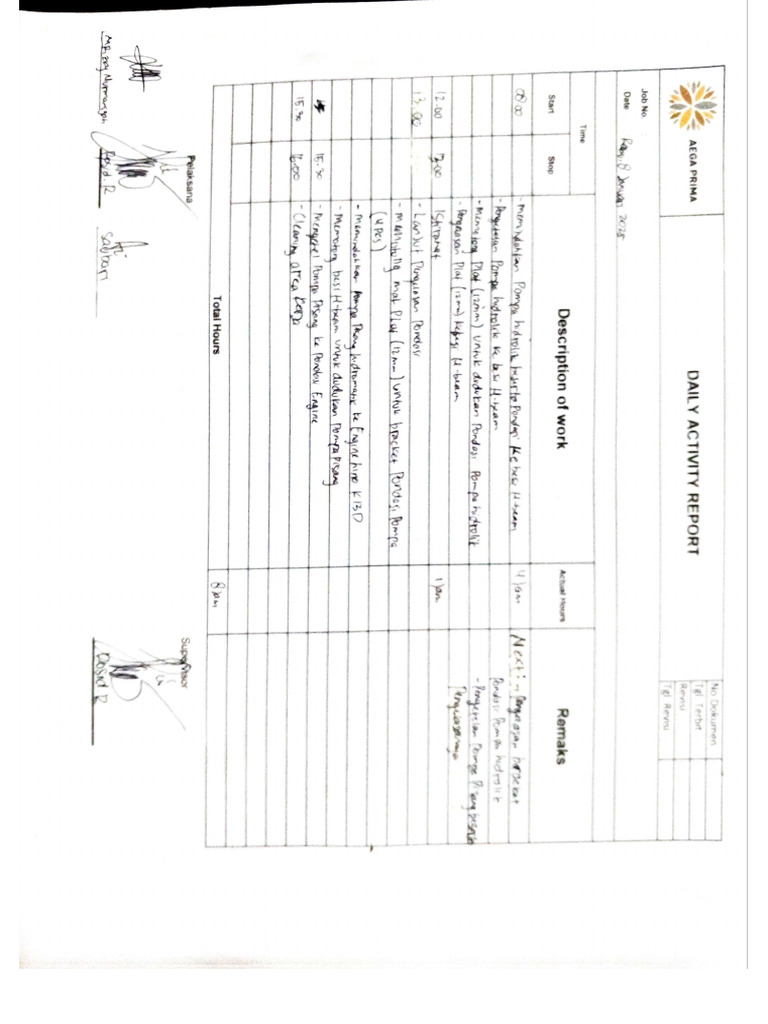 AEGA PRIMA
DAILY ACTIVITY REPORT
No Dokumen
Tgl Terbit
Revisi
Tgl Revisi
Job No. :
Date : Rabu, 8 Januari 2025
Time
Description of work
Actual Hours
Remaks
Start
Stop
08.00
- Memindahkan Pompa hidrolik beserta Pondasi ke besi H-beam
4 Jam
Next : - Pengelasan
- Pengelasan Pompa hidrolik ke besi H-beam
Pondasi Pompa hidrolik
- Memotong Plat (12mm) untuk dudukan Pondasi Pompa hidrolik
- Pengelasan Pompa Pisang
- Pengelasan Plat (12mm) kebesi H-beam
12.00
13.00
Istirahat
1 Jam
13.00
- Lanjut Pengelasan Pondasi
- Plat (12mm) untuk bracket Pondasi Pompa
(4 Pcs)
- Memindahkan Pompa Pisang hidromatik ke Engine hino K13D
- Memotong besi H-beam untuk dudukan Pompa Pisang
15.30
- Pompa Pisang ke Pondasi Engine
15.30
16.00
- Cleaning area kerja
Total Hours
8 Jam
Pelaksana
Supervisor
Rosyd. R
Rosyd R